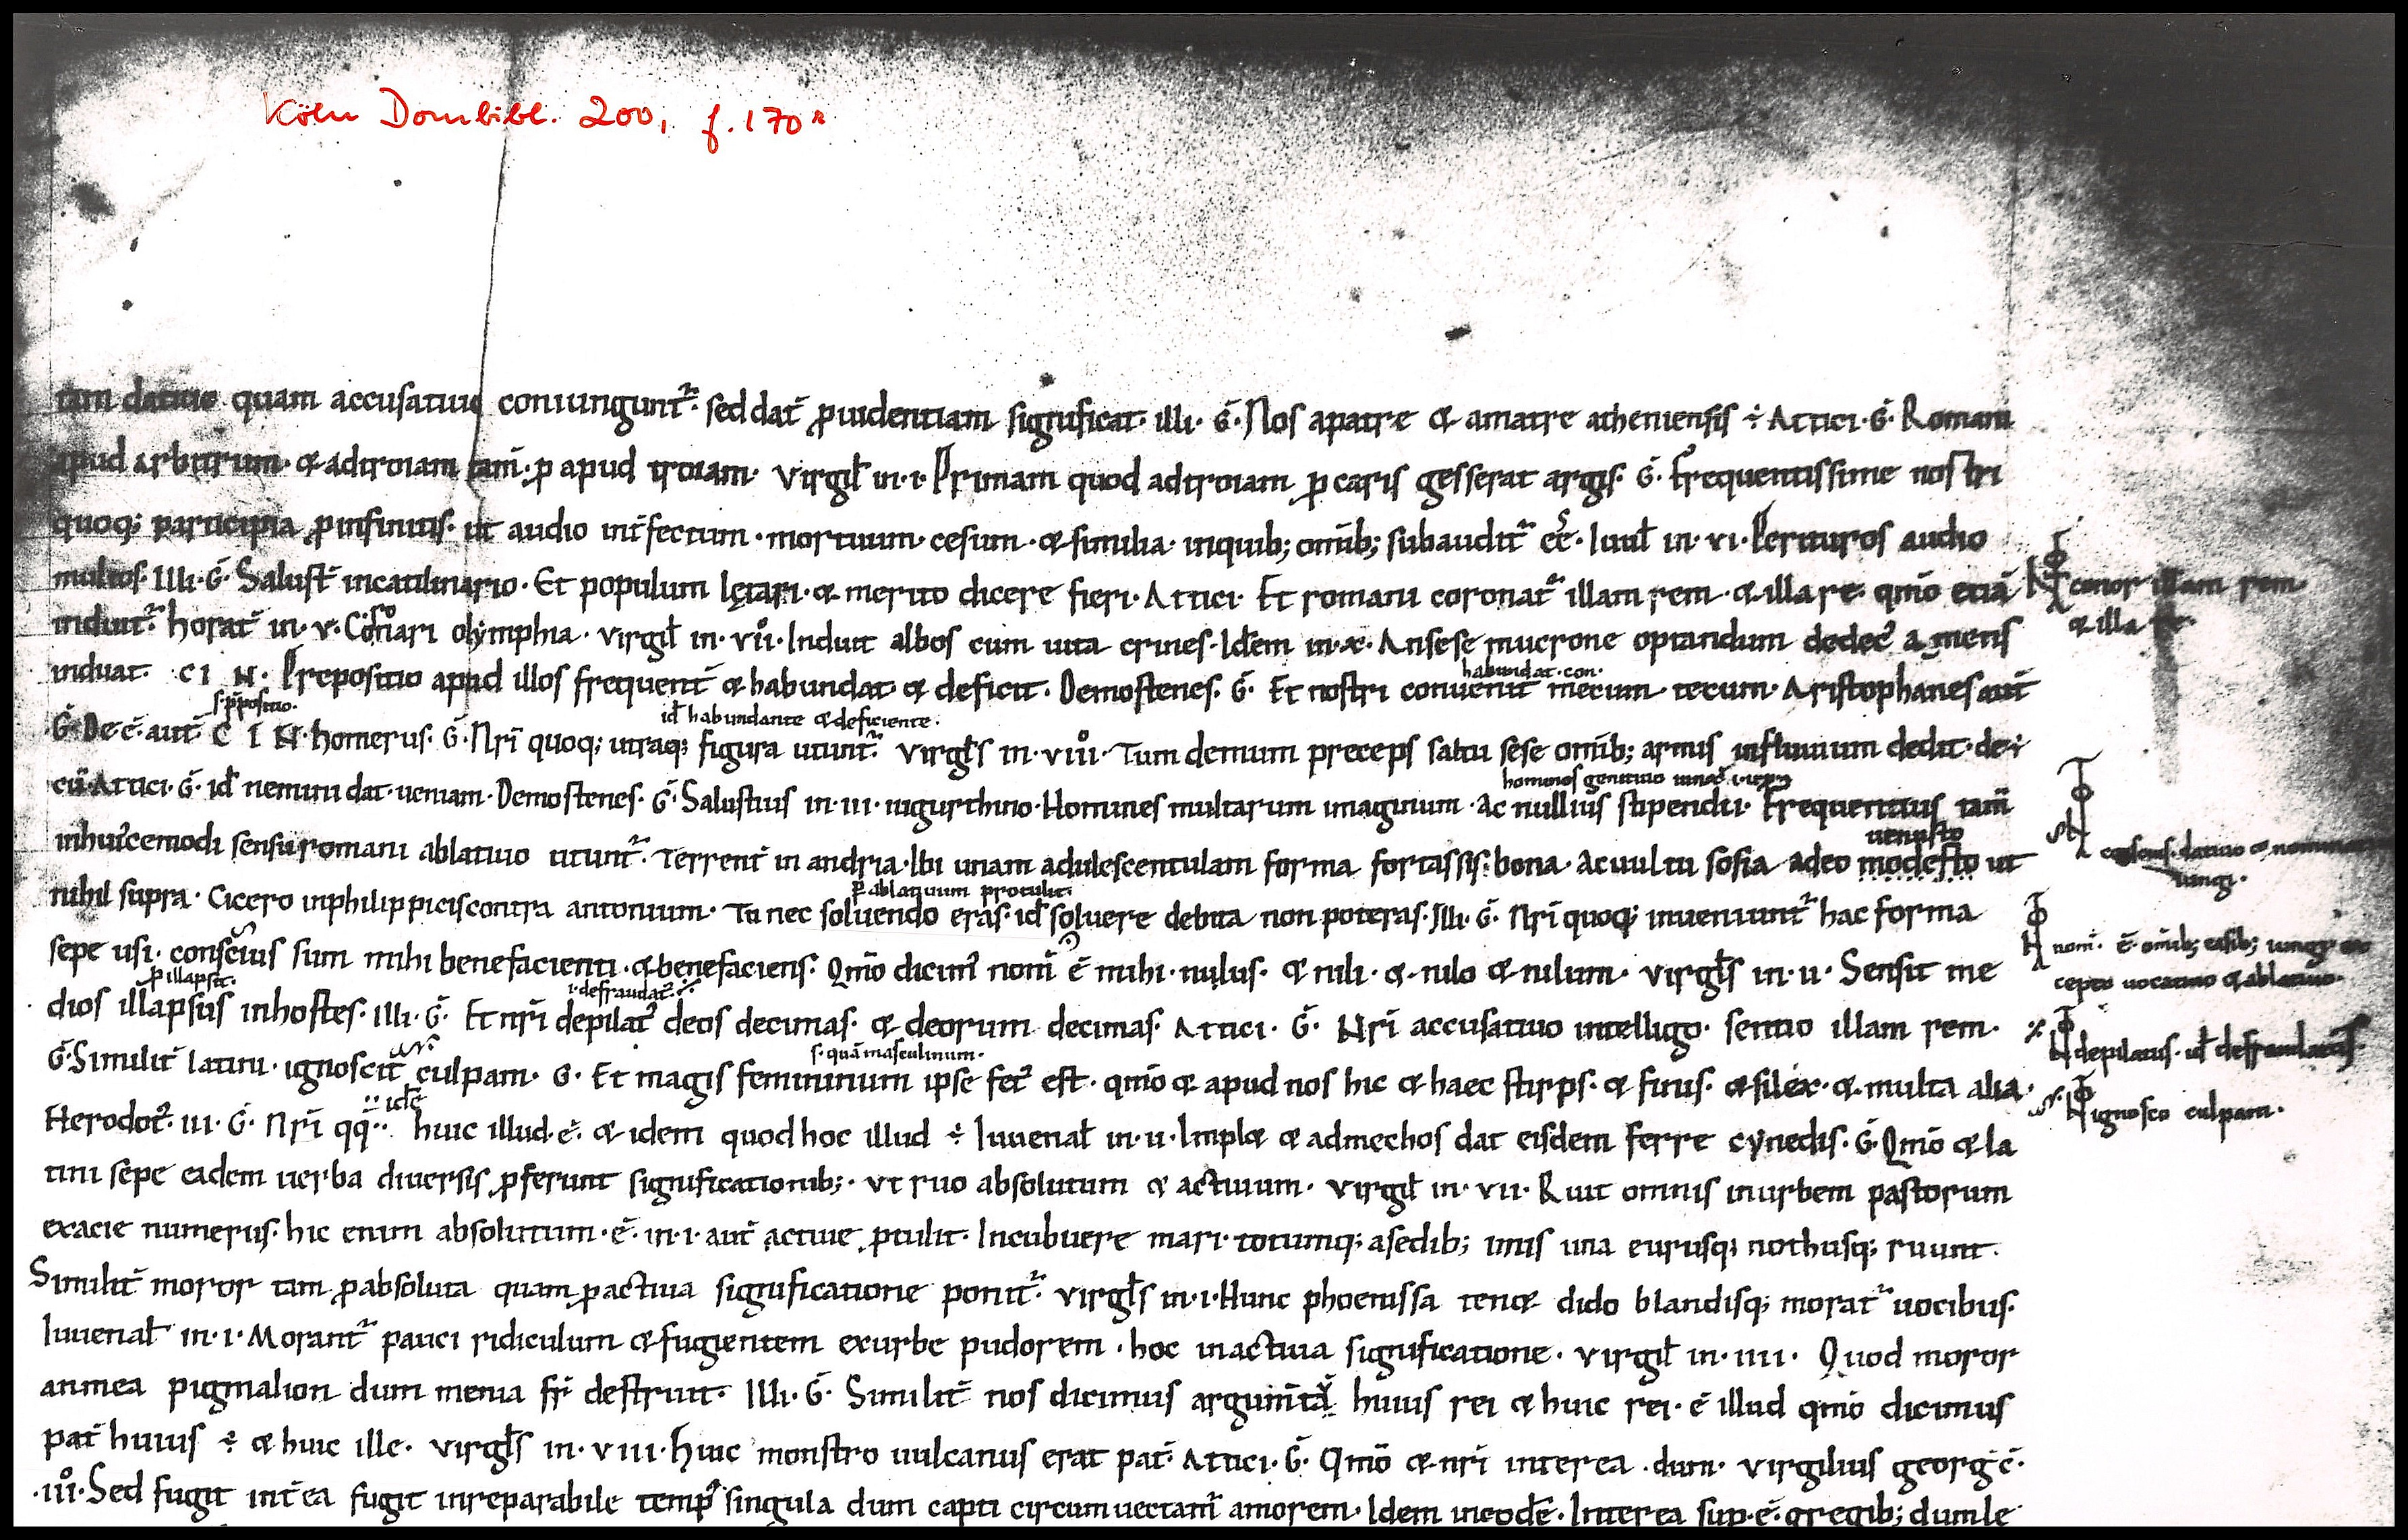 Köln Dombibl. 200, f. 170r
tam datiuo quam accusatiuo coniungunt᷑· sed dat̄ ꝓuidentiam significat· illi· G̅· Nos apatre & amatre atheniensis ÷ Attici· G̅· Romani
apud arbitrum· & adtroiam tam̄· ꝓ apud troiam· Virgil̄ in· i· Primam quod adtroiam ꝓ caris gesserat argis· G̅· Frequentissime nostri
quoq; participia ꝓ infinitis· ut audio int̄fectum· mortuum· cesum· & similia· inquib; omīb; subaudit᷑ eē· Iuul̄ in· vi· Perituros audio
multos· Illi· G̅· Salust̄ incatilinario· Et populum lętari· & merito dicere fieri· Attici· Et romani coronat᷑ illam rem· & illa re· qm̄o etiā
induit᷑· horat̄ in· v· Coronari olymphia· Virgil̄ in· viiº· Induit albos cum uita crines· Idem in· x· An sese mucrone optandum dedec᷒ amens
induat· C I N· Prepositio apud illos frequent̄ & habundat & deficit· Demostenes· G̅· Et nostri conuenit mecum tecum· Aristophanes aut̄
habundat· con·
G̅· De ē· aut̄ C I N· homerus· G̅· Nr̄i quoq; utraq; figura utunt᷑· Virgl̄s in· viiiº· Tum demum preceps saltu sese omīb; armis influuium dedit· de·i·
s· p̄positio·
id̄ habundante & deficiente·
cū· Attici· G̅· id̄ nemini dat· ueniam· Demostenes· G̅· Salustius in· iii· iugurthino· Homines multarum imaginum· ac nullius stipendii· Frequentius tam̄
inhuiꝰcemodi sensu romani ablatiuo utunt᷑· Terrent̄ in andria· Ibi unam adulescentulam forma fortassis· bona· Acuultu sosia adeo modesto ut
uenusto
nihil supra· Cicero inphilippiciscontra antonium· Tu nec soluendo eras· id̄ soluere debita non poteras· Illi· G̅· Nr̄i quoq; inueniunt᷑ hac forma
ꝑ ablatiuum protulit·
sepe usi· conscius sum mihi benefacienti· & benefaciens· Qm̄o dicim᷒ nom̄ ē mihi· nilus· & nili· & nilo & nilum· Virgl̄s in· ii· Sensit me
dios illapsus inhostes· Illi· G̅· Et nr̄i depilat᷒ deos decimas· & deorum decimas· Attici· G̅· Nr̄i accusatiuo intelligo· sentio illam rem·
ꝑ illapsū·
i· defraudat᷒·
G̅· Similit̄ latini· ignoscit culpam· G̅· Et magis femininum ipse fec᷒ est· qm̄o & apud nos hic & haec stirps· & finis· & silex· & multa alia·
s· quā masculinum·
Herodot᷒· iii· G̅· Nr̄i qq̄· huic illud· ē· & idem quod hoc illud ÷ Iuuenal̄ in· ii· Impl& & admechos dat eisdem ferre cynedis· G̅· Qm̄o & la
tini sepe eadem uerba diuersis ꝓferunt significationib;· ut ruo absolutum & actiuum· Virgil̄ in· vii· Ruit omnis inurbem pastorum
exacie numerus· hic enim absolutum· ē· in· i· aut̄ actiue ꝓtulit· Incubuere mari· totumq; asedib; imis una eurusq; nothusq; ruunt·
Similit̄ moror tam ꝓabsoluta quam ꝓactiua significatione ponit᷑· Virgl̄s in· i· Hunc phoenissa ten& dido blandisq; morat᷑ uocibus·
Iuuenal̄ in· i· Morant᷑ pauci ridiculum & fugientem exurbe pudorem· hoc inactiua significatione· Virgil̄ in· iiii· Quod moror
anmea pigmalion dum menia fr̄ destruit· Illi· G̅· Similit̄ nos dicimus argum̄ta huius rei & huic rei· ē illud qm̄o dicimus
pat̄ huius ÷ & huic ille· Virgl̄s in· viii· Huic monstro uulcanus erat pat̄· Attici· G̅· Qm̄o & nr̄i interea· dum· Virgilius georḡc̄·
·iiiº· Sed fugit int̄ea fugit inreparabile temp᷒ singula dum capti circumuectam̄ amorem· Idem ineodē· Interea sup· ē· gregib; dumle
conor illam rem
& illa re·
nom̄· ē· omīb; casib; iungi ex
cepto uocatiuo & ablatiuo·
depilatus· id̄ defraudatus·
ignosco culpam·